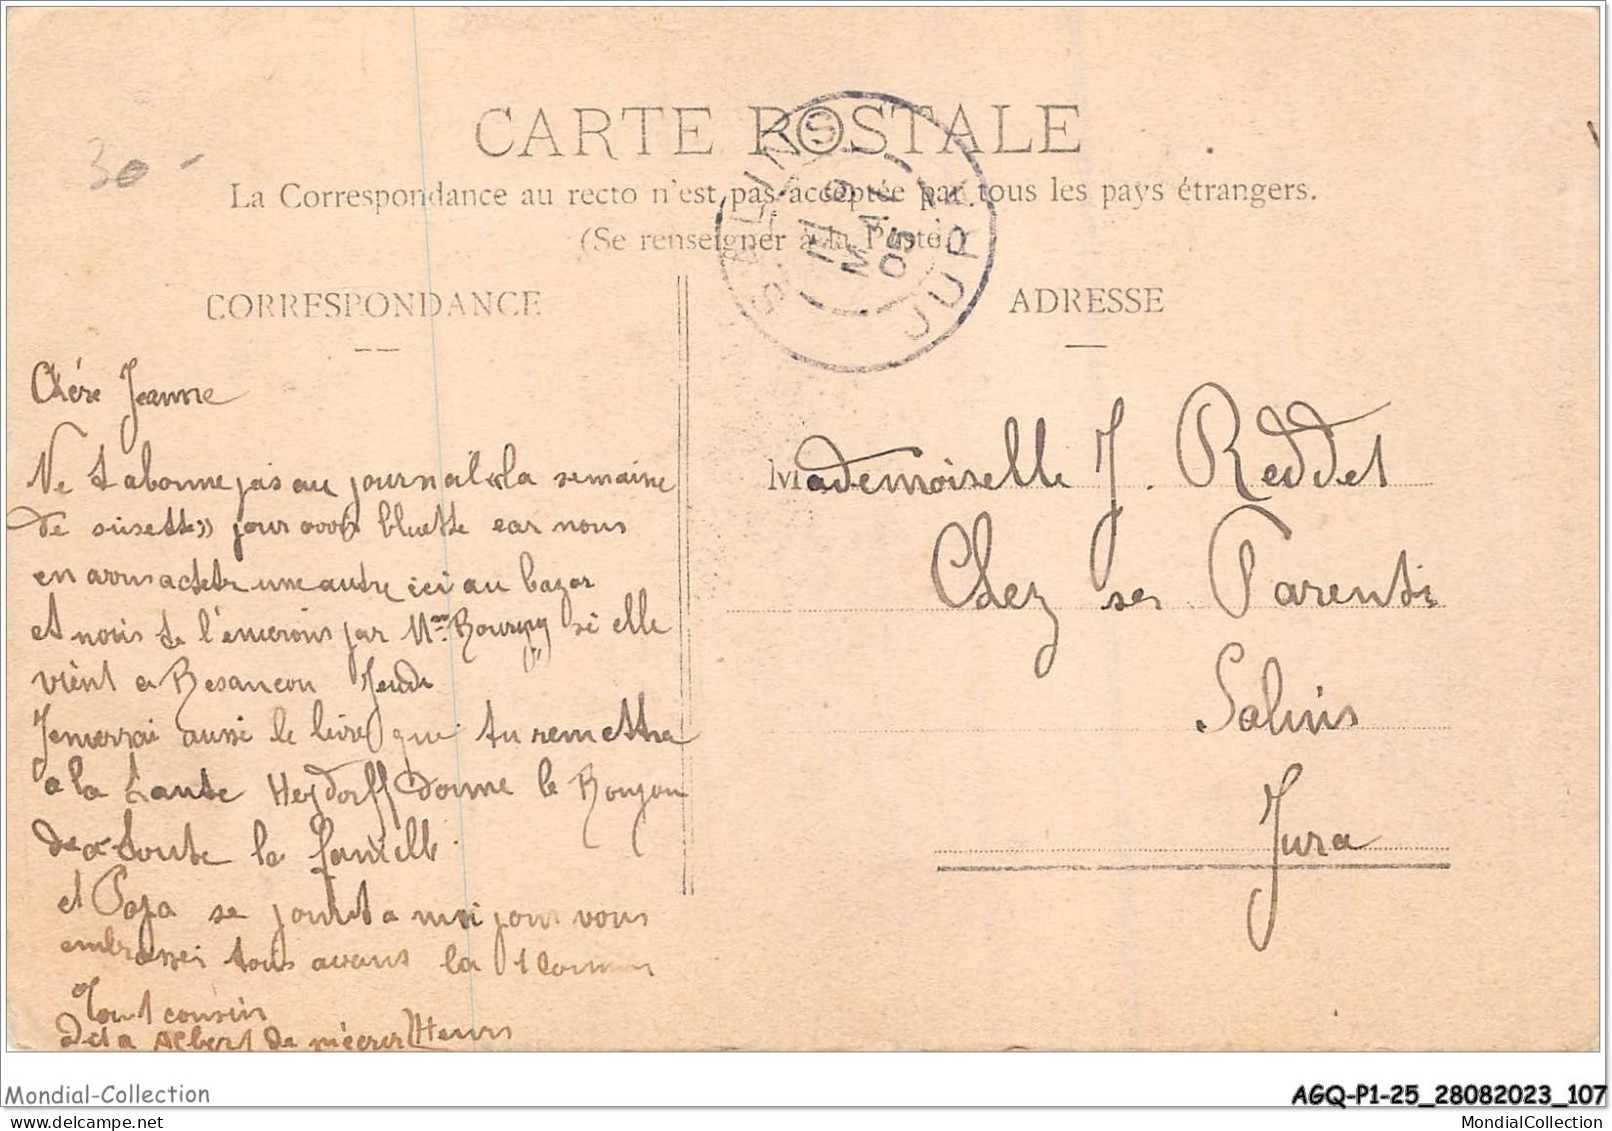 30 -
CARTE POSTALE
La Correspondance au recto n'est pas acceptée par tous les pays étrangers.
(Se renseigner à la Poste)
SALINS
9
MAI
05
JURA
CORRESPONDANCE
ADRESSE
Chére Jeanne
Ne t abonne pas au journal « la semaine
de suisette » pour avoir bluette car nous
en avons acheter une autre ici au bazar
et nous te l'enverons par Mme si elle
vient a Besançon Jeudi
J'enverrai aussi le livre que tu remettra
a la tante Heydorff donne le Bonjou
de a toute la famille
et Papa se joint a moi pour vous
embrasser tous avans la
Tout cousin
dit a Albert de mécrir Henri
Mademoiselle J. Reddet
Chez ses Parents
Salins
Jura
Mondial-Collection
AGQ-P1-25_28082023_107
MondialCollection